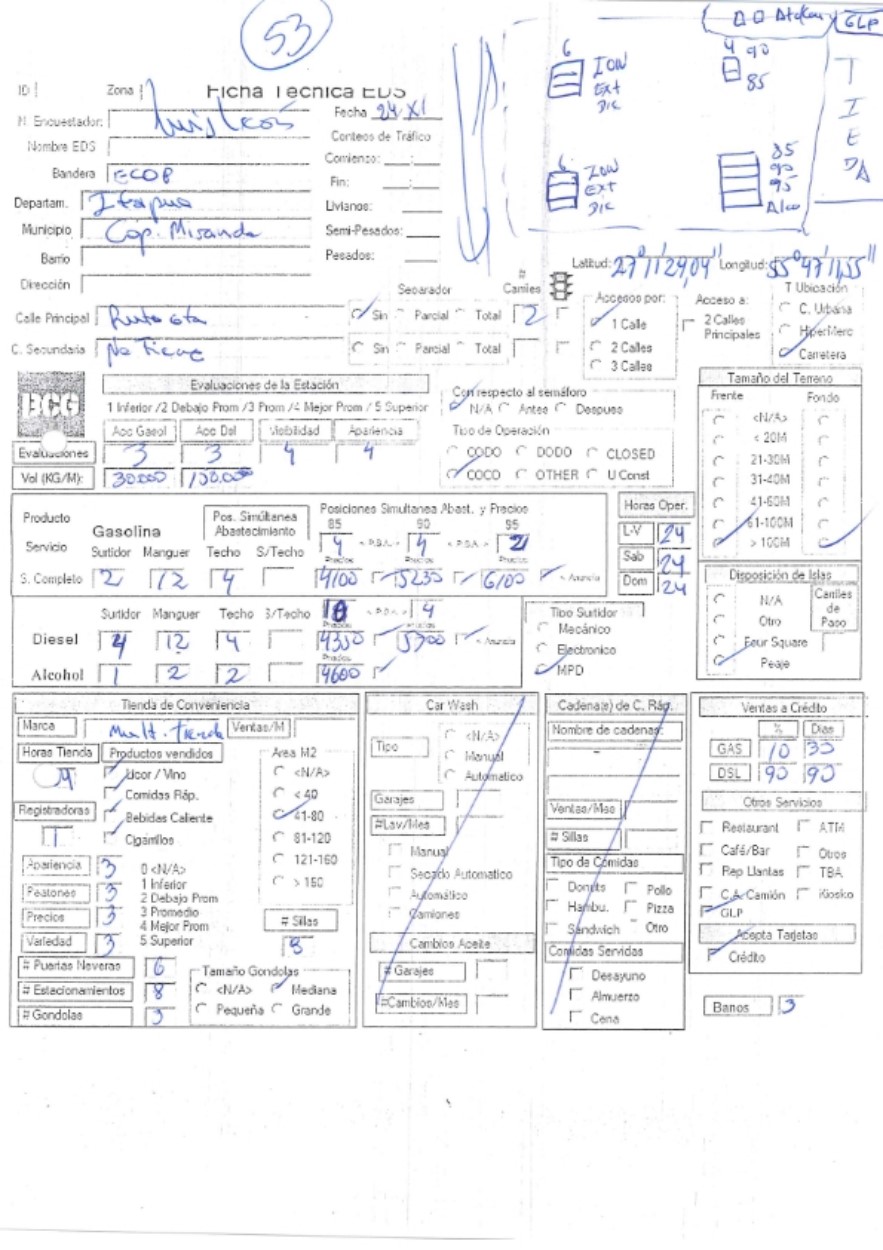 53
ID
Zona
Ficha Tecnica EDS
N. Encuestador:
Fecha 24 XI
Nombre EDS
Conteos de Tráfico
Bandera ECOP
Comienzo:
Fin:
Departam. Itapua
Livianos:
Municipio Cap. Miranda
Semi-Pesados:
Barrio
Pesados:
Dirección
Calle Principal Ruta 6ta
C. Secundaria No Tiene
6
ION
Ext
Dic
4 90
85
GLP
6
ION
Ext
Dic
85
90
95
Alco
T
I
E
DA
Latitud: 27°11'29,04" Longitud: 55°47'11,55"
Separador
# Carriles
Sin Parcial Total 2
Sin Parcial Total
Accesos por:
1 Calle
2 Calles
3 Calles
Acceso a:
2 Calles Principales
T Ubicación
C. Urbana
HiperMerc
Carretera
ECG
Evaluaciones de la Estación
1 Inferior /2 Debajo Prom /3 Prom /4 Mejor Prom / 5 Superior
Acc Gasol Acc Dsl Visibilidad Apariencia
Evaluaciones 3 3 4 4
Vol (KG/M): 30.000
Con respecto al semáforo
N/A Antes Despues
Tipo de Operación
CODO DODO CLOSED
COCO OTHER U Const
Tamaño del Terreno
Frente Fondo
<N/A>
< 20M
21-30M
31-40M
41-60M
61-100M
> 100M
Producto
Servicio
Gasolina
Pos. Simúltanea Abastecimiento
Posiciones Simultanea Abast. y Precios
85 90 95
Surtidor Manguer Techo S/Techo
4 4 2
Precios
S. Completo 2 12 4 4100 5235 6100
Horas Oper.
L-V 24
Sab 24
Dom 24
Surtidor Manguer Techo S/Techo
4
Diesel 4 12 4 4350 5700
Alcohol 1 2 2 4600
Tipo Surtidor
Mecánico
Electronico
MPD
Disposición de Islas
N/A
Otro
Four Square
Peaje
Carriles de Paso
Tienda de Conveniencia
Marca Ventas/M
Horas Tienda Productos vendidos
Licor / Vino
Comidas Ráp.
Bebidas Caliente
Cigarrillos
Registradoras 1
Area M2
<N/A>
< 40
41-80
81-120
121-160
> 160
Apariencia 3
Peatones 3
Precios 3
Variedad 3
0 <N/A>
1 Inferior
2 Debajo Prom
3 Promedio
4 Mejor Prom
5 Superior
# Sillas
8
# Puertas Neveras 6
# Estacionamientos 8
# Gondolas 3
Tamaño Gondolas
<N/A> Mediana
Pequeña Grande
Car Wash
Tipo
<N/A>
Manual
Automatico
Garajes
#Lav/Mes
Manual
Secado Automatico
Automático
Camiones
Cambios Aceite
# Garajes
#Cambios/Mes
Cadena(s) de C. Ráp.
Nombre de cadenas:
Ventas/Mes
# Sillas
Tipo de Comidas
Donuts Pollo
Hambu. Pizza
Sandwich Otro
Comidas Servidas
Desayuno
Almuerzo
Cena
Ventas a Crédito
% Dias
GAS 10 30
DSL 90 90
Otros Servicios
Restaurant ATM
Café/Bar Otros
Rep Llantas TBA
C.A. Camión Kiosko
GLP
Acepta Tarjetas
Crédito
Banos 3